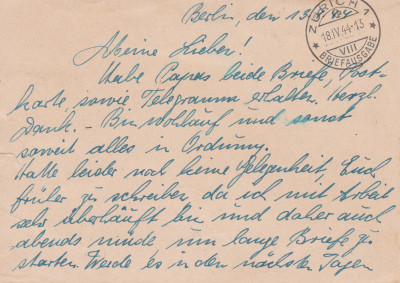 Berlin, den 13.4.44
ZÜRICH 1
18.IV.44-13
VIII
BRIEFAUSGABE
Meine Lieben!
Habe Papas beide Briefe, Post-
karte, sowie Telegramm erhalten. Herzl.
Dank. - Bin wohlauf und sonst
soweit alles in Ordnung.
Hatte leider noch keine Gelegenheit, Euch
früher zu schreiben, da ich mit Arbeit
sehr überhäuft bin und daher auch
abends müde um lange Briefe zu
starten. Werde es in den nächsten Tagen